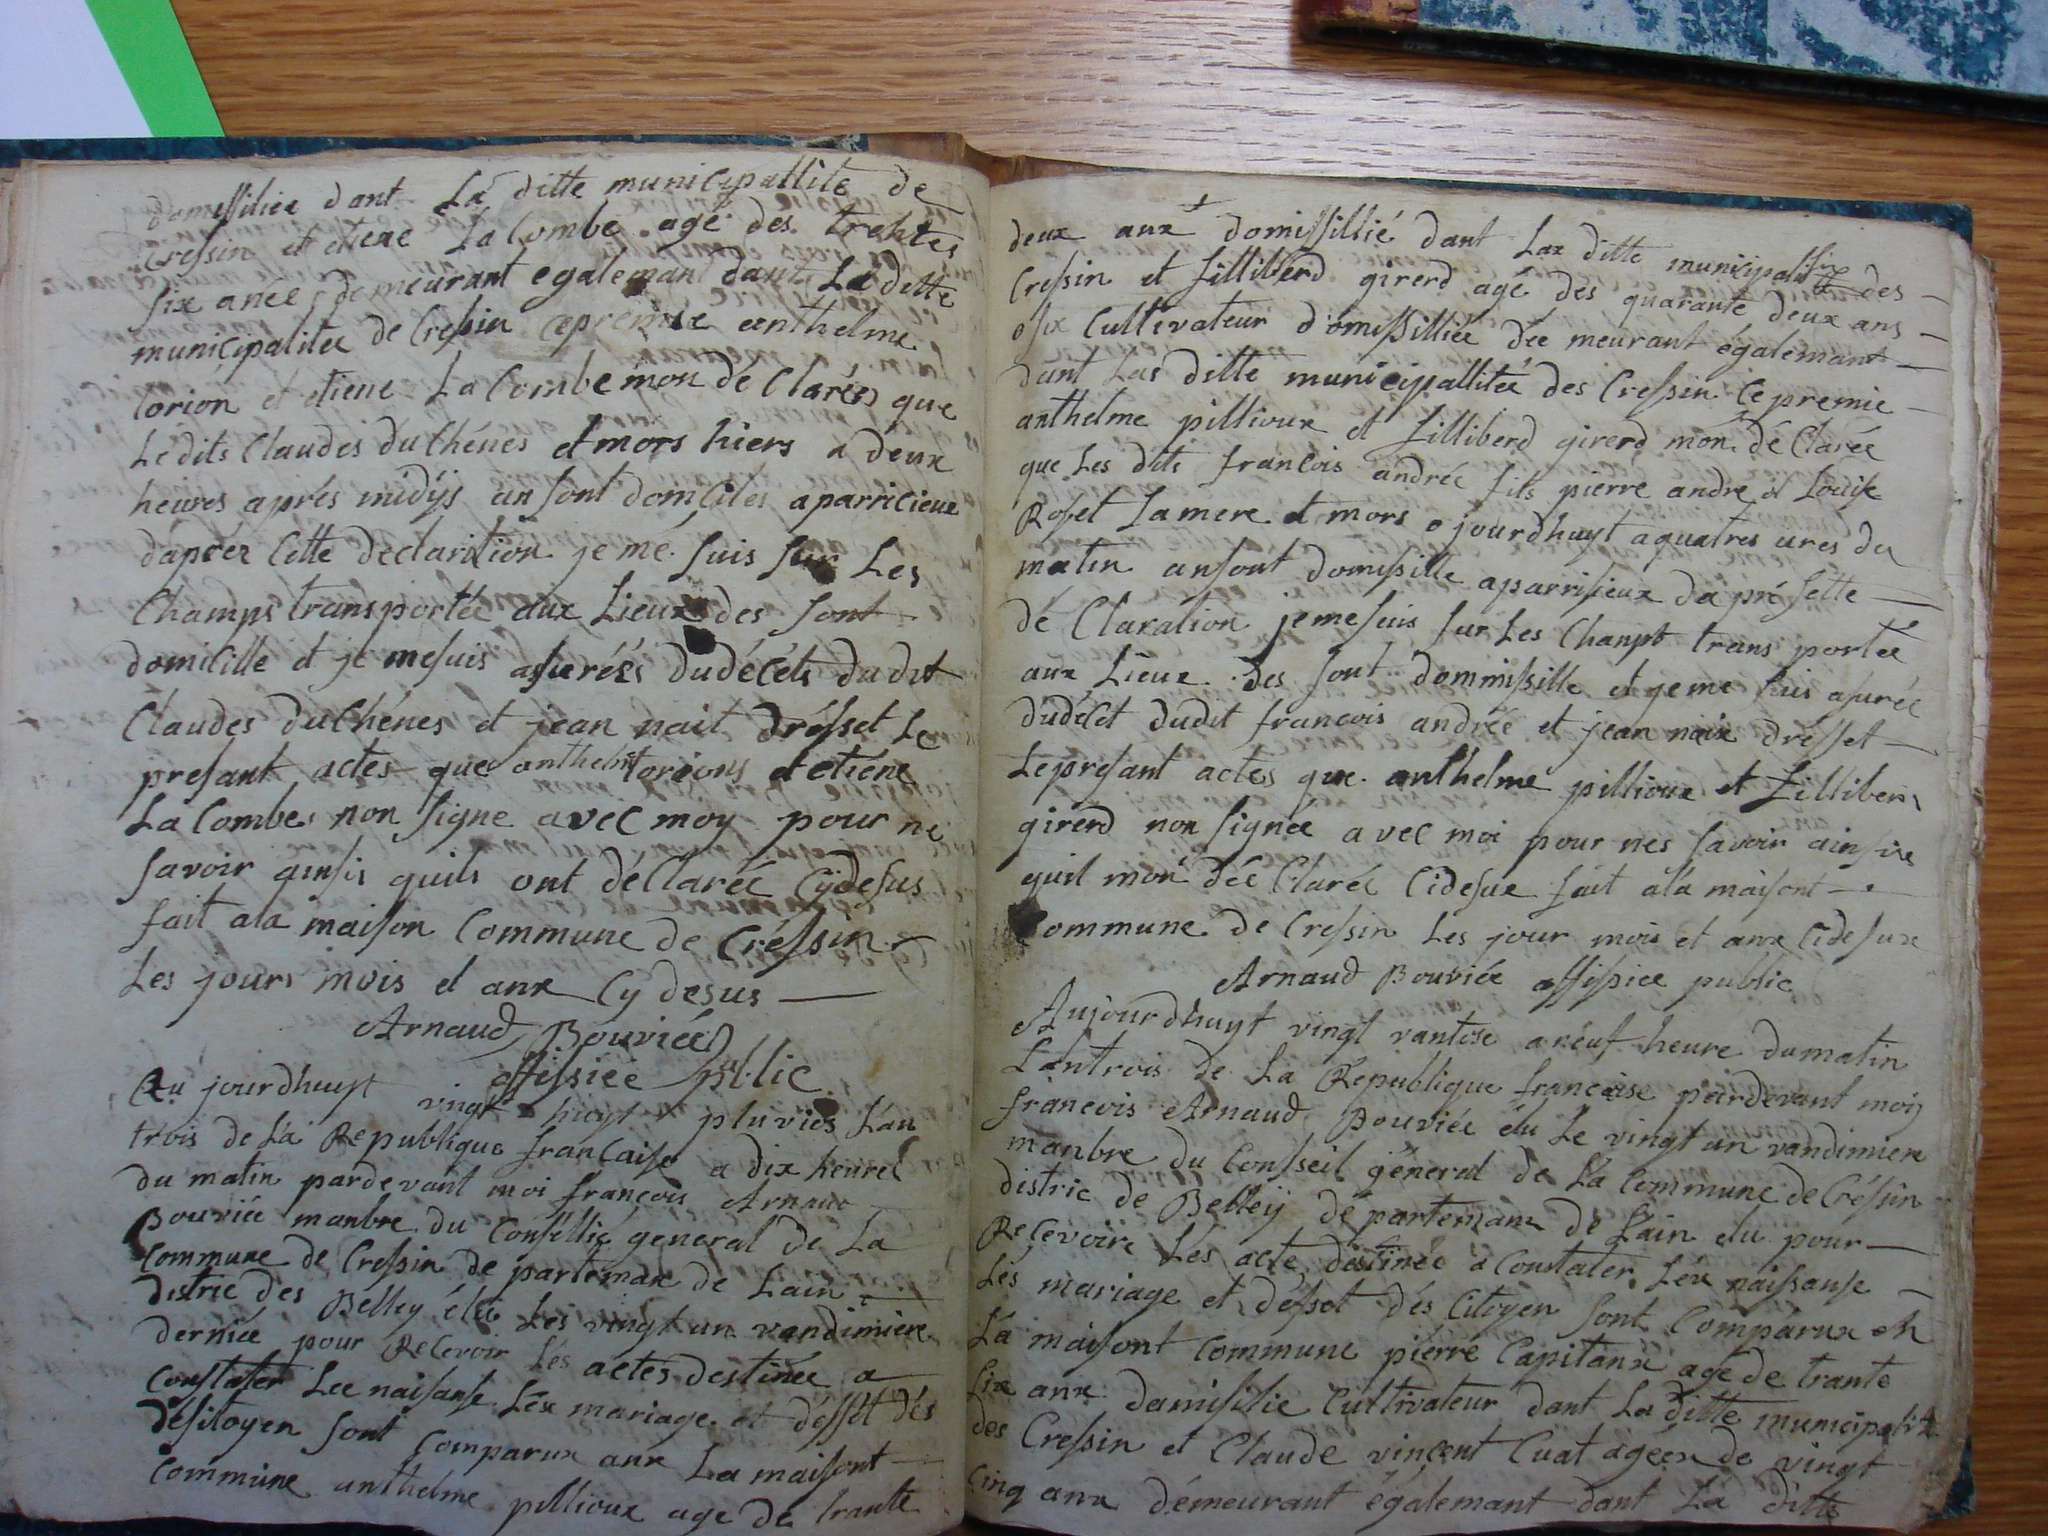 domissiliee dant La ditte municipallité de
Cressin et etiene LaCombe agé des trentes
six anée demeurant egalemant dant La ditte
municipalitee de Cressin ce premié anthelme
lorion et etiene LaCombe mon dé Clarée que
Le dits Claudes duChénes et mors hiers a deux
heures aprés midijs an sont domciles aparricieux
daprér Cette declaration je mé suis sur Les
Champs transportée aux Lieux des sont
domicille et je mesuis asurées dudécéts dudit
Claudes duChénes et jean nait drésset Le
presant actes que anthelme lorions et etiéne
LaCombes non signe avec moy pour ne
savoir ainsis quils ont déClaréé Cydesus
fait ala maison Commune de Créssin
Les jours mois et anx Cy desus
Arnaud Bouviée
offissiée public
Au jourdhuyt vingt huyt pluvies Lan
trois de La Republique francaise a dix heures
du matin pardevant moi francois Arnaud
Bouviée manbre du Conséllié general de La
Commune de Cressin de partemant de Lain
distric des Belley élu Les vingt un vandimiere
derniée pour Recevoir Lés actes destinée a
Constater Lee naisanse Léx mariage et désset dés
désitoyen sont comparux anx La maisont
Commune anthelme pillioux age de trante
deux anx domissillié dant Lax ditte municipalité des
Cressin et filliberd girerd agé des quarante deux ans
osix Cultivateur domissilliée dée meurant égalemant
dant Las ditte municipallitée des Cressin Ce premie
anthelme pillioux et filliberd girerd mon dé Clarée
que Les dits francois andrée fils pierre andre et Louise
Roset Lamere et mors ojourdhuyt a quatres ures du
matin ansont domissille aparrisieux da pré sette
dé Claration jemesuis sur Les Chanpt trans portée
aux Lieux des sont dommissille et jeme suis asurée
dudécét dudit francois andrée et jean naix drésset
Le presant actes que anthelme pillioux et filliberd
girerd non signée avec moi pour nes savoir ainsis
quil mon dée Claréé Cidesux fait ala maisont
Commune de Cressin Les jour mois et anx Cidesux
Arnaud Bouviée offissiee public
Aujourdhuyt vingt vantose a neuf heure dumatin
Lantrois de La Republique francaise pardevant moy
francois Arnaud Bouviée élu Le vingt un vandimiere
manbre du Consseil géneral de La Commune de Créssin
distric de Belleÿ départemant de Lain elu pour
Recevoire Les acte destinée a Constater Léx naissanse
Les mariage et désset dés Citoyen sont Comparux en
La maisont Commune pierre Capitanx agé de trante
six anx damisilie Cultivateur dant La ditte municipalité
des Cressin et Claude vincent Cuat ageer de vingt
Cinq anx démeurant égalemant dant La ditte